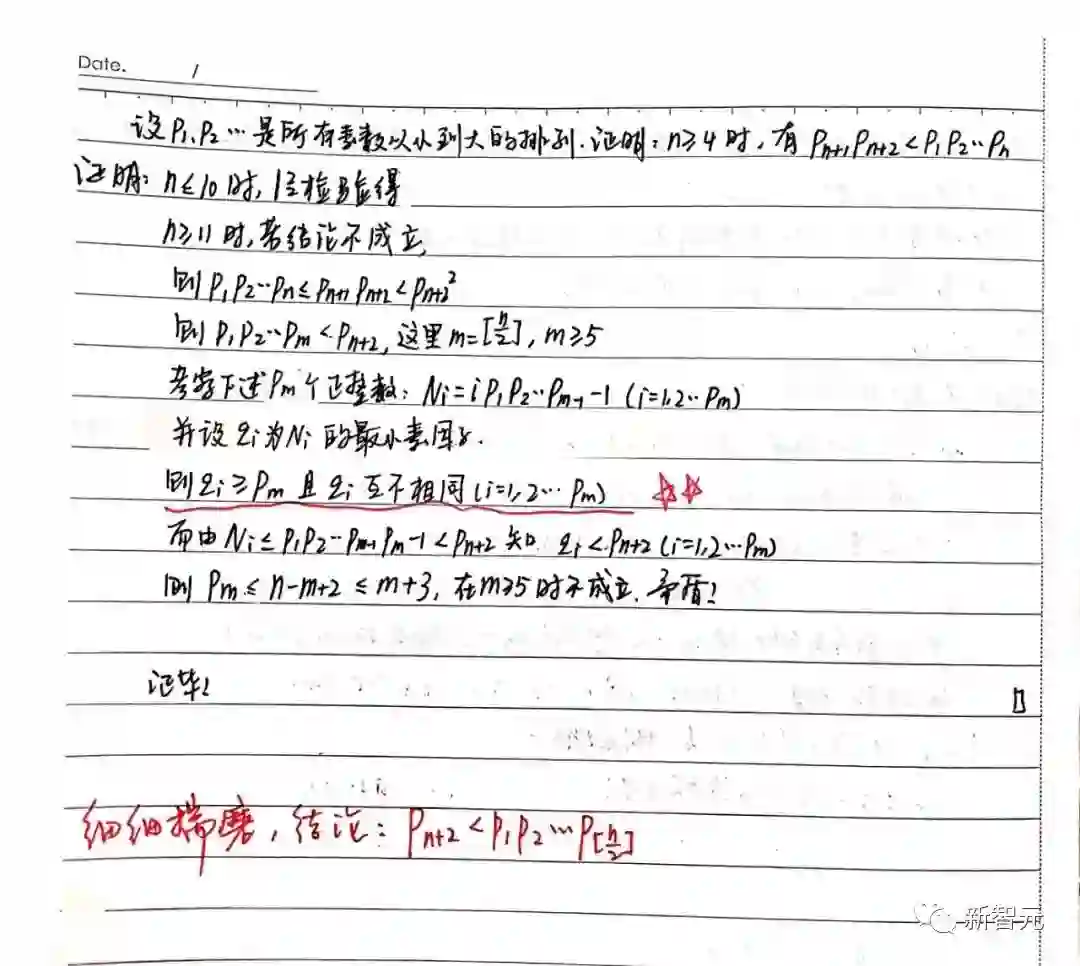 Date. /
设P₁、P₂…是所有素数从小到大的排列.证明:n≥4时,有Pₙ₊₁Pₙ₊₂<P₁P₂…Pₙ
证明:n≤10时,经检验显得
n≥11时,若结论不成立,
则P₁P₂…Pₙ≤Pₙ₊₁Pₙ₊₂<Pₙ₊₂²
则P₁P₂…Pₘ<Pₙ₊₂,这里m=[n/2],m≥5
考察下述Pₘ个正整数:Nᵢ=iP₁P₂…Pₘ₋₁-1(i=1,2…Pₘ)
并设qᵢ为Nᵢ的最小素因子.
则qᵢ≥Pₘ且qᵢ互不相同(i=1,2…Pₘ) ☆☆
而由Nᵢ≤P₁P₂…Pₘ₋₁Pₘ-1<Pₙ₊₂知 qᵢ<Pₙ₊₂(i=1,2…Pₘ)
则Pₘ≤n-m+2≤m+3,在m≥5时不成立.矛盾!
证毕!
细细揣磨,结论:Pₙ₊₂<P₁P₂…P[n/2]
新智元